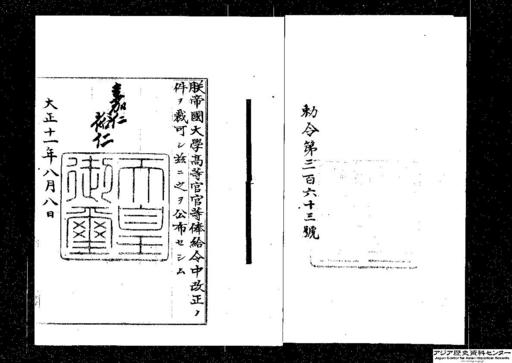 勅令第三百六十三號
朕帝國大學高等官官等俸給令中改正ノ
件ヲ裁可シ茲ニ之ヲ公布セシム
嘉仁
裕仁
天皇
御璽
大正十一年八月八日
アジア歴史資料センター
Japan Center for Asian Historical Records